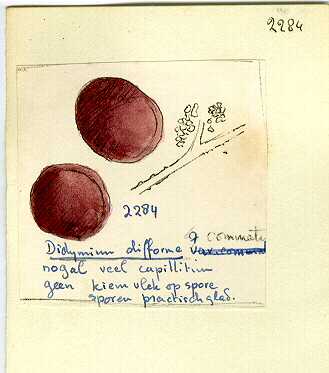 2284
2284
Didymium difforme
nogal veel capillitium
geen kiemvlek op spore
sporen practisch glad.